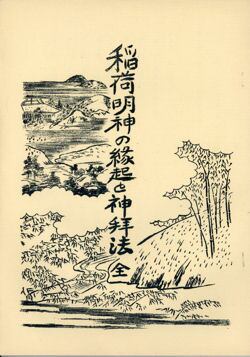 稲荷明神の縁起と神拜法 全